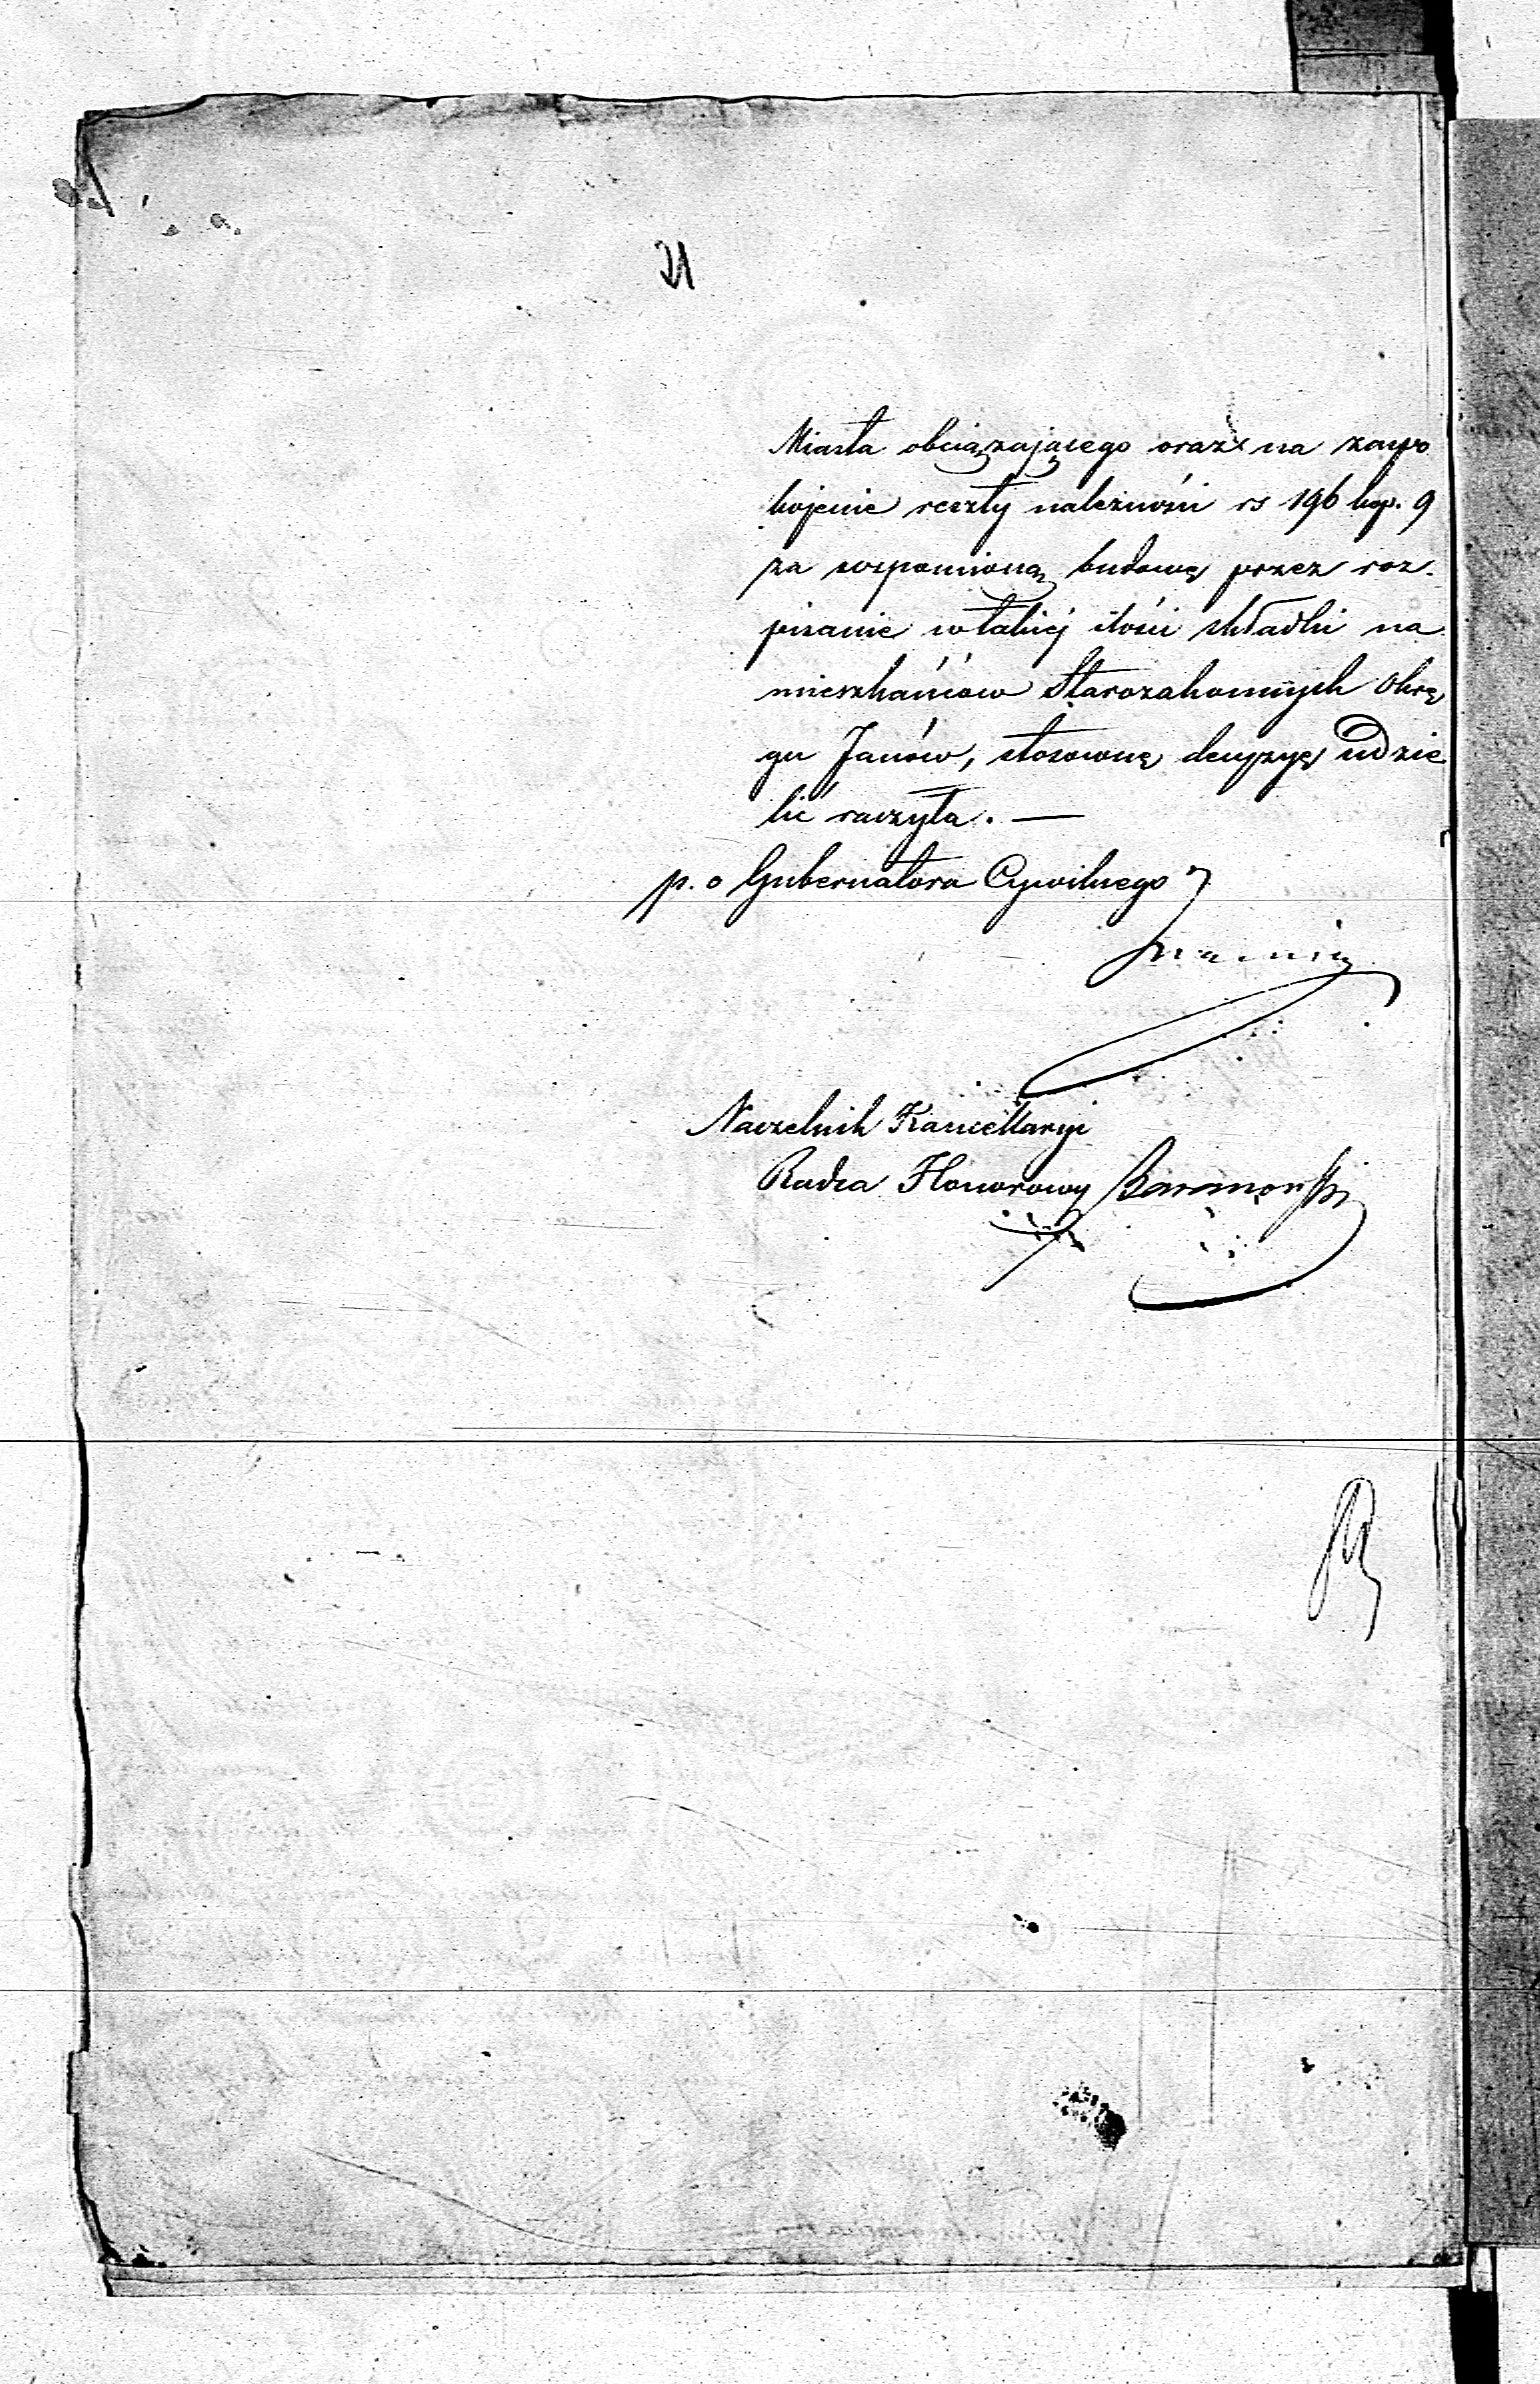 21
Miasta obciązającego oraz na zaspo
kojenie reszty należności rs 196 kop. 9
za wspomnioną budowę przez roz-
pisanie w takiej ilości składki na
mieszkańców Starozakonnych Okrę
gu Janów, stosowną decyzyę udzie
lić raczyła. —
p. o Gubernatora Cywilnego
Naczelnik Kancellaryi
Radca Honorowy Baranowski